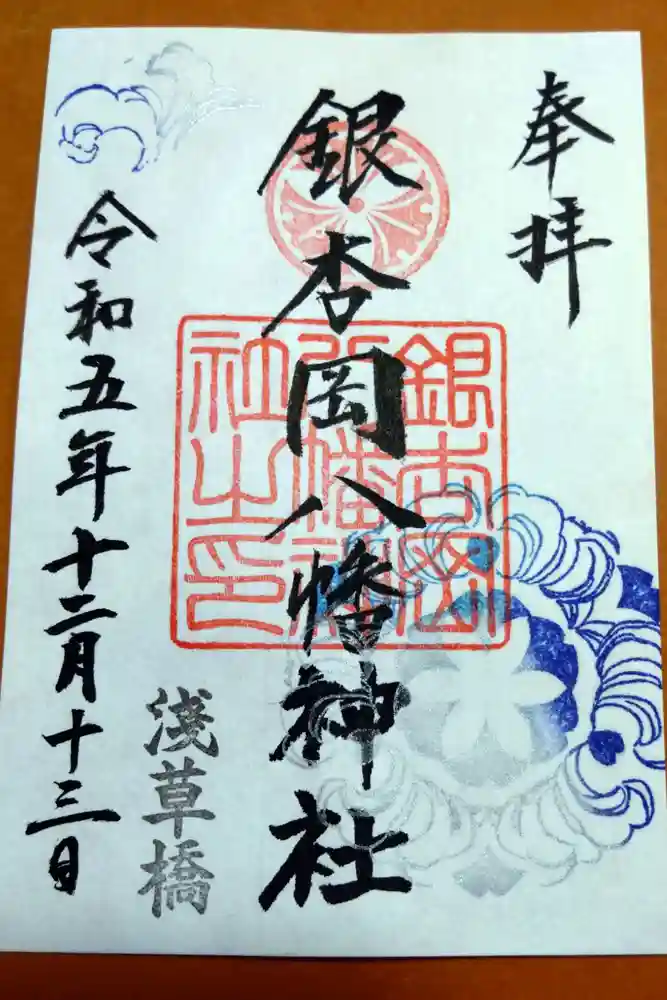 奉拝
銀杏岡八幡神社
銀杏岡八幡神社之印
浅草橋
令和五年十二月十三日